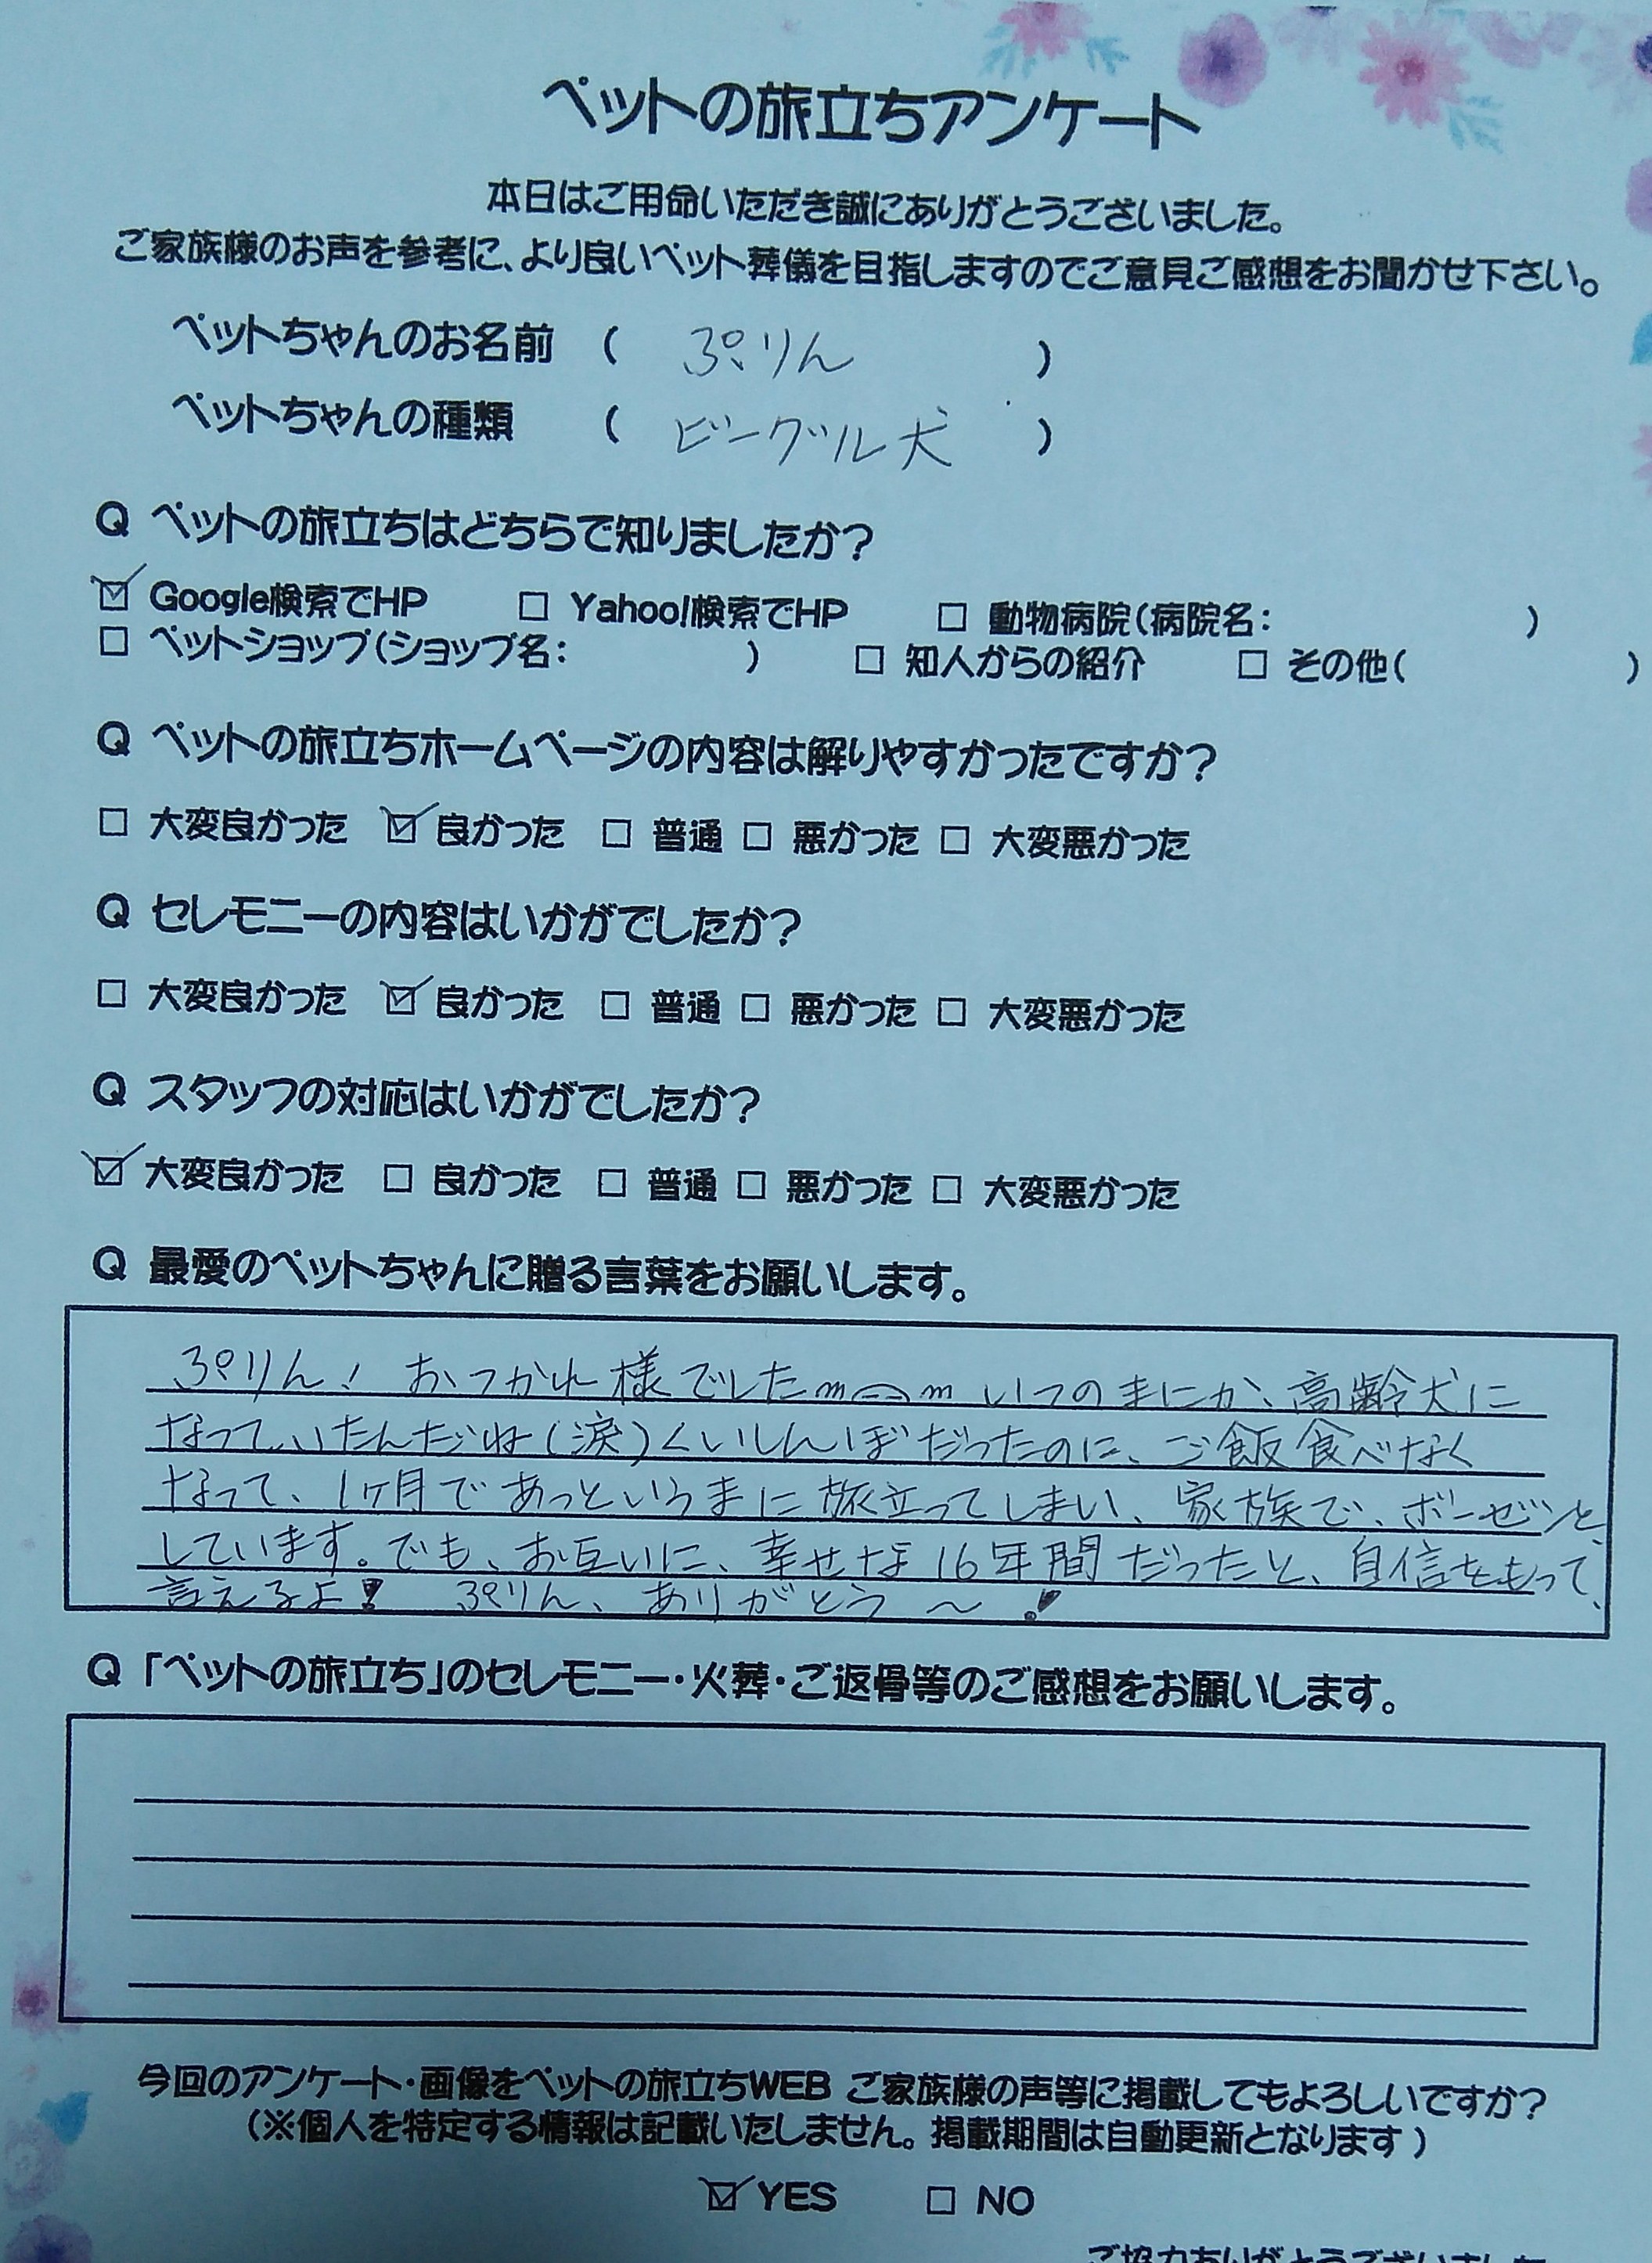 ペットの旅立ちアンケート
本日はご用命いただき誠にありがとうございました。
ご家族様のお声を参考に、より良いペット葬儀を目指しますのでご意見ご感想をお聞かせ下さい。
ペットちゃんのお名前 ( ぷりん )
ペットちゃんの種類 ( ビーグル犬 )
Q ペットの旅立ちはどちらで知りましたか?
☑ Google検索でHP □ Yahoo!検索でHP □ 動物病院(病院名: )
□ ペットショップ(ショップ名: ) □ 知人からの紹介 □ その他( )
Q ペットの旅立ちホームページの内容は解りやすかったですか?
□ 大変良かった ☑ 良かった □ 普通 □ 悪かった □ 大変悪かった
Q セレモニーの内容はいかがでしたか?
□ 大変良かった ☑ 良かった □ 普通 □ 悪かった □ 大変悪かった
Q スタッフの対応はいかがでしたか?
☑ 大変良かった □ 良かった □ 普通 □ 悪かった □ 大変悪かった
Q 最愛のペットちゃんに贈る言葉をお願いします。
ぷりん! おつかれ様でしたm⌒m いつのまにか、高齢犬に
なっていたんだね(涙)くいしんぼだったのに、ご飯食べなく
なって、1ヶ月であっというまに旅立ってしまい、家族で、ボーゼンと
しています。でも、お互いに、幸せな16年間だったと、自信をもって、
言えるよ! ぷりん、ありがとう〜!
Q 「ペットの旅立ち」のセレモニー・火葬・ご返骨等のご感想をお願いします。
今回のアンケート・画像をペットの旅立ちWEB ご家族様の声等に掲載してもよろしいですか?
(※個人を特定する情報は記載いたしません。掲載期間は自動更新となります)
☑ YES □ NO
ご協力ありがとうございました